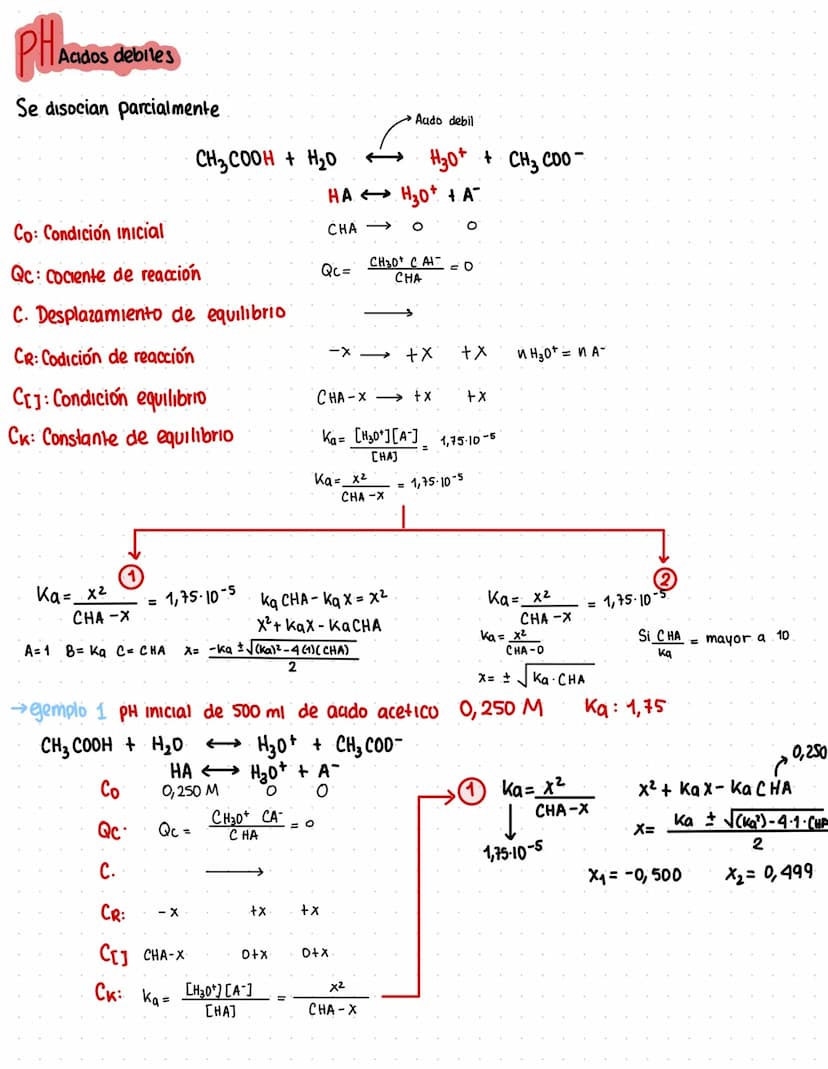 PH Acidos debiles
Se disocian parcialmente
Acido debil
CH₃COOH + H₂O ⟷ H₃O⁺ + CH₃COO⁻
HA ⟷ H₃O⁺ + A⁻
C₀: Condición inicial CHA → 0 0
Qc: cociente de reacción Qc = CH₃O⁺ C A⁻ / CHA = 0
C. Desplazamiento de equilibrio ⟶
CR: Codición de reacción -x → +x +x n H₃O⁺ = n A⁻
C[]: Condición equilibrio CHA-x → +x +x
Ck: Constante de equilibrio Ka = [H₃O⁺][A⁻] / [HA] = 1,75·10⁻⁵
Ka = x² / CHA-x = 1,75·10⁻⁵
①
Ka = x² / CHA-x = 1,75·10⁻⁵ Ka CHA - Ka x = x²
x² + Kax - KaCHA
A=1 B=Ka C=CHA x = -Ka ± √(Ka)² - 4(1)(CHA) / 2
②
Ka = x² / CHA-x = 1,75·10⁻⁵
Ka = x² / CHA-0 Si CHA / Ka = mayor a 10
x = ± √Ka·CHA
→ejemplo 1 pH inicial de 500 ml de acido acetico 0,250 M Ka: 1,75
CH₃COOH + H₂O ⟷ H₃O⁺ + CH₃COO⁻
HA ⟷ H₃O⁺ + A⁻
C₀ 0,250 M 0 0
Qc· Qc = CH₃O⁺ CA⁻ / CHA = 0
C. ⟶
CR: -x +x +x
C[] CHA-x 0+x 0+x
Ck: Ka = [H₃O⁺][A⁻] / [HA] = x² / CHA-x
① Ka = x² / CHA-x
1,75·10⁻⁵
0,250
x² + Kax - KaCHA
x = Ka ± √(Ka²)-4·1·CHA / 2
x₁ = -0,500 x₂ = 0,499